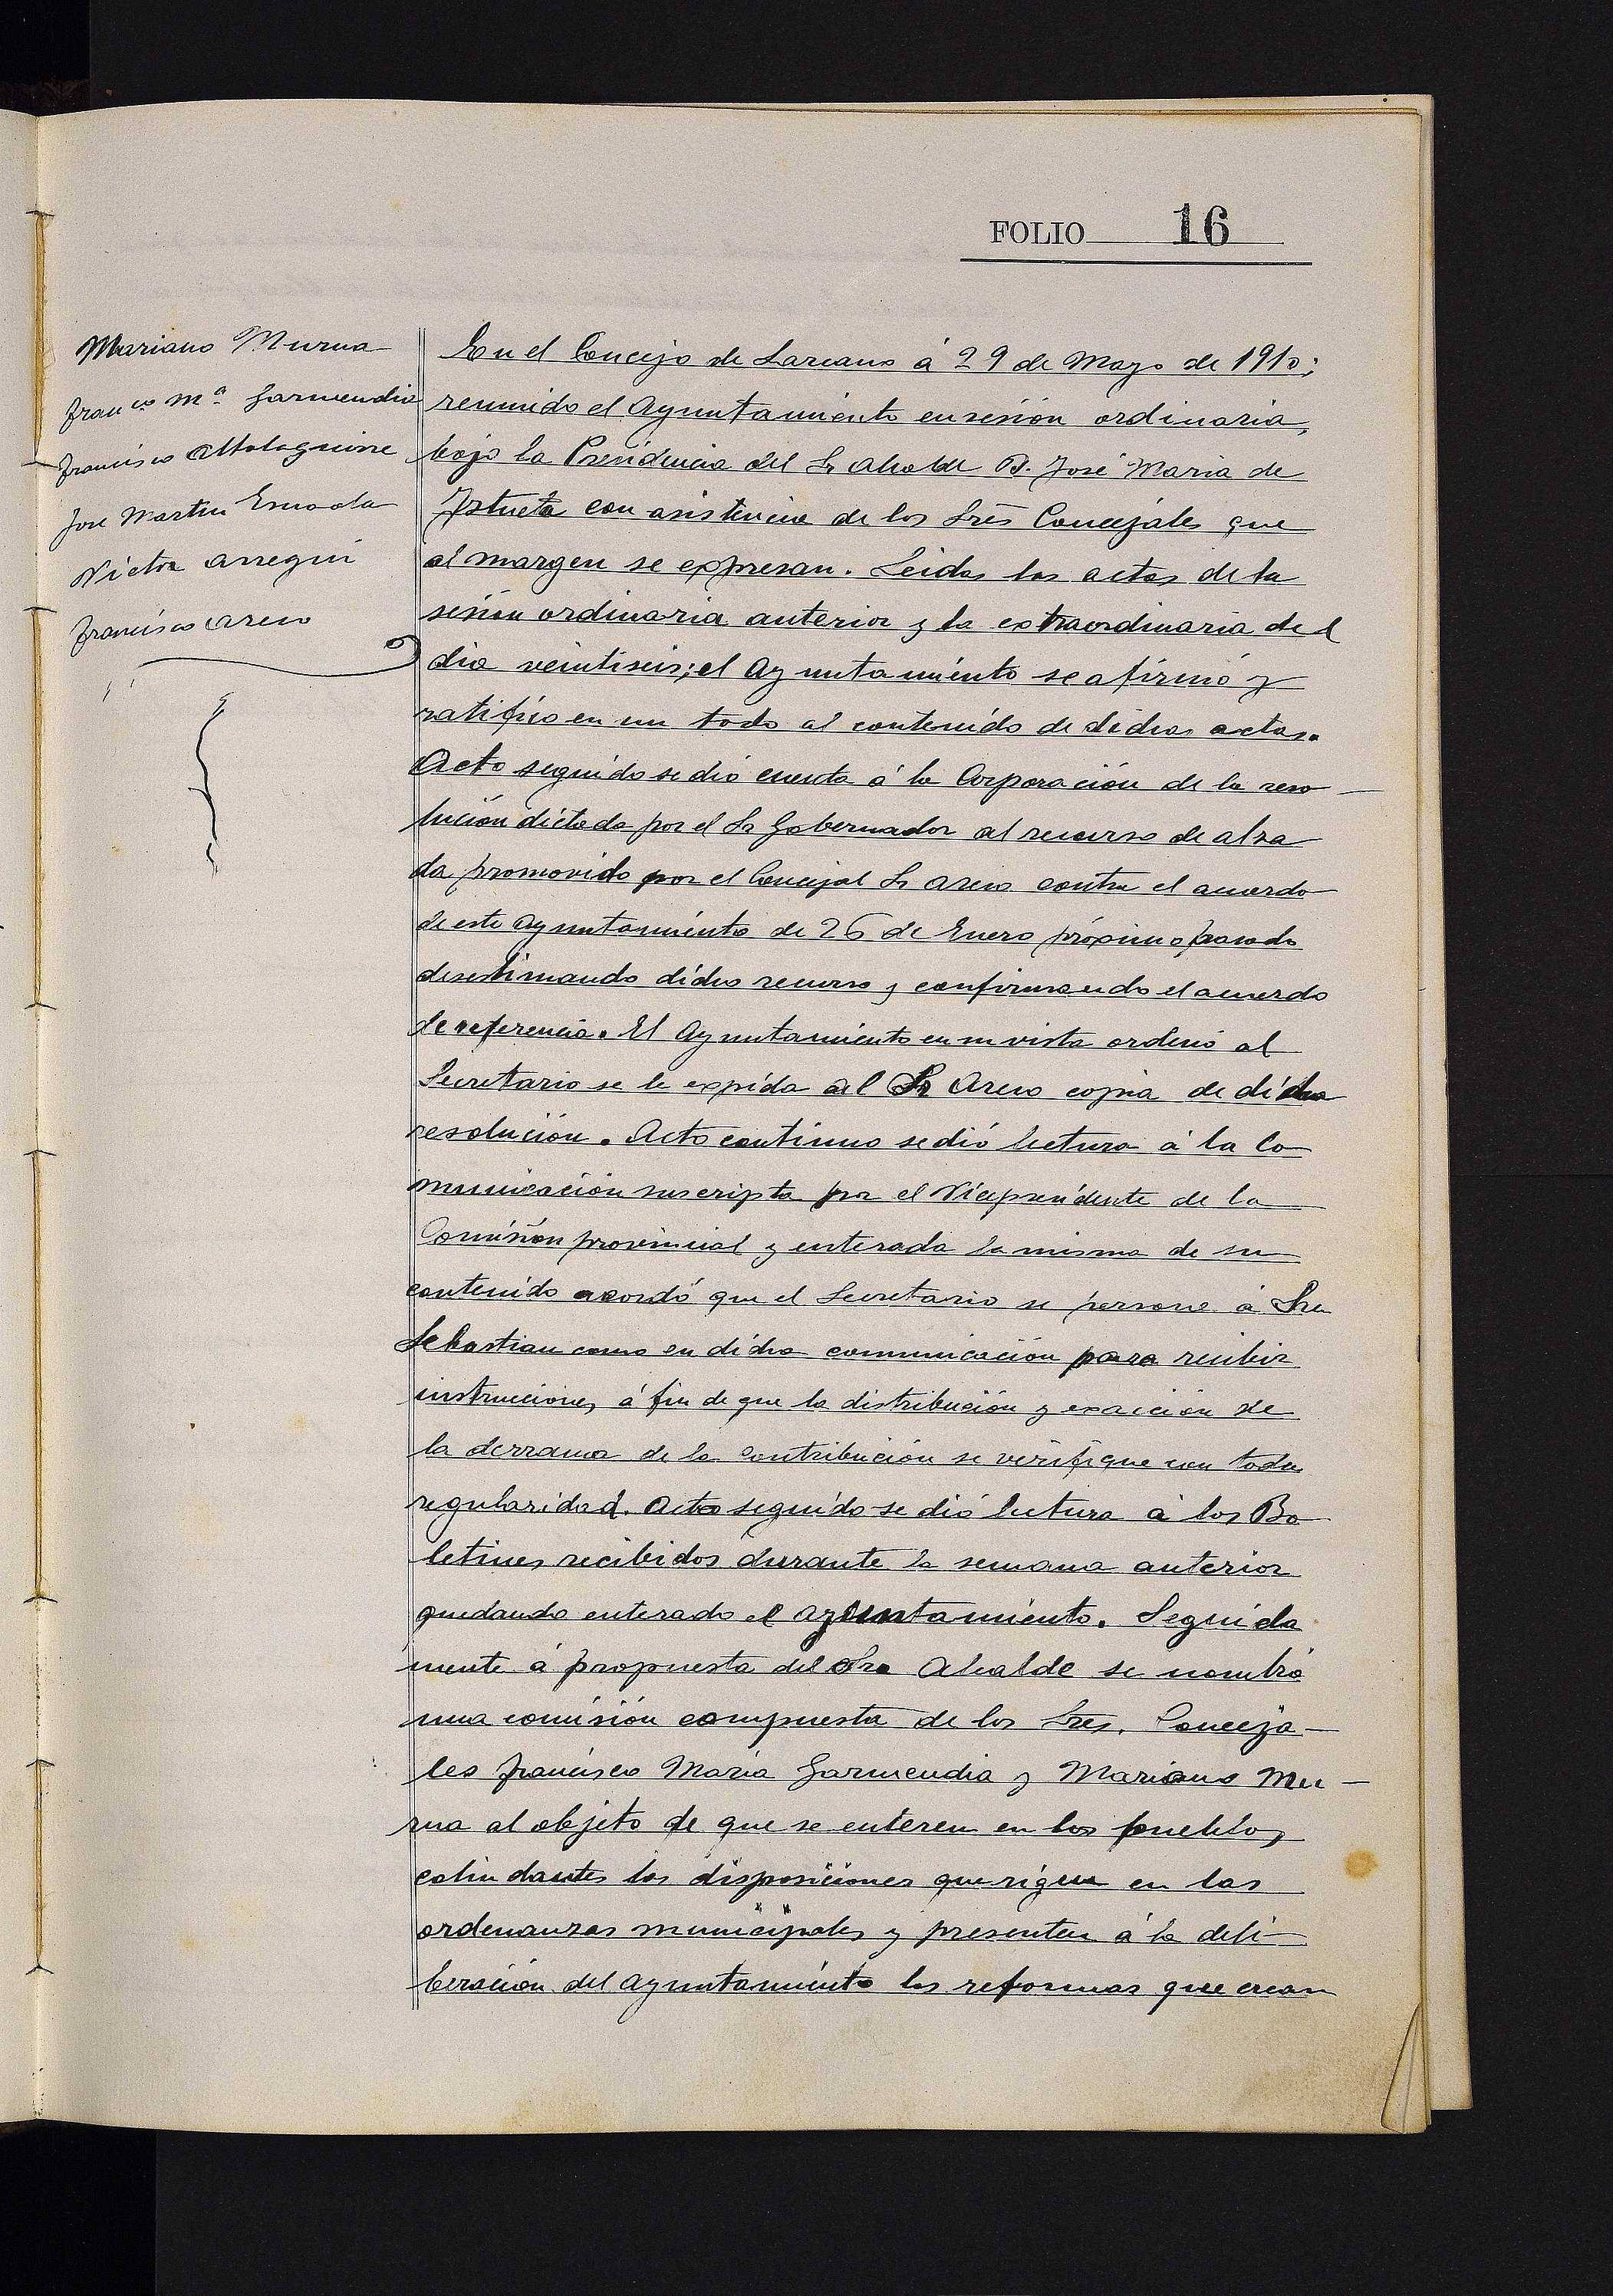 FOLIO 16
Mariano Murua
Franco Mª Garmendia
Francisco Altolaguirre
Jose Martin Esnaola
Victor Arregui
Francisco Areso
En el Concejo de Lazcano á 29 de Mayo de 1910;
reunido el Ayuntamiento en sesión ordinaria,
bajo la Presidencia del Sr Alcalde D. José Maria de
Iztueta con asistencia de los Sres Concejales que
al margen se expresan. Leidas las actas de la
sesión ordinaria anterior y la extraordinaria del
dia veintiseis; el Ayuntamiento se afirmó y
ratificó en un todo al contenido de dichas actas.
Acto seguido se dió cuenta á la Corporación de la reso-
lución dictada por el Sr Gobernador al recurso de alza
da promovido por el Concejal Sr Areso contra el acuerdo
de este Ayuntamiento de 26 de Enero próximo pasado
desestimando dicho recurso y confirmando el acuerdo
de referencia. El Ayuntamiento en su vista ordenó al
Secretario se le expida al Sr Areso copia de dicha
resolución. Acto continuo se dió lectura á la co
municación suscripta por el Vicepresidente de la
Comisión provincial y enterada la misma de su
contenido acordó que el Secretario se persone á San
Sebastian como en dicha comunicación para recibir
instrucciones á fin de que la distribución y exacción de
la derrama de la contribución se verifique con toda
regularidad. Acto seguido se dió lectura á los Bo
letines recibidos durante la semana anterior
quedando enterado el ayuntamiento. Seguida
mente á propuesta del Sr Alcalde se nombró
una comisión compuesta de los Sres. Conceja-
les Francisco Maria Garmendia y Mariano Mu-
rua al objeto de que se enteren en los pueblos
colindantes las disposiciones que rigen en las
ordenanzas municipales y presenten á la deli-
beración del ayuntamiento las reformas que crean